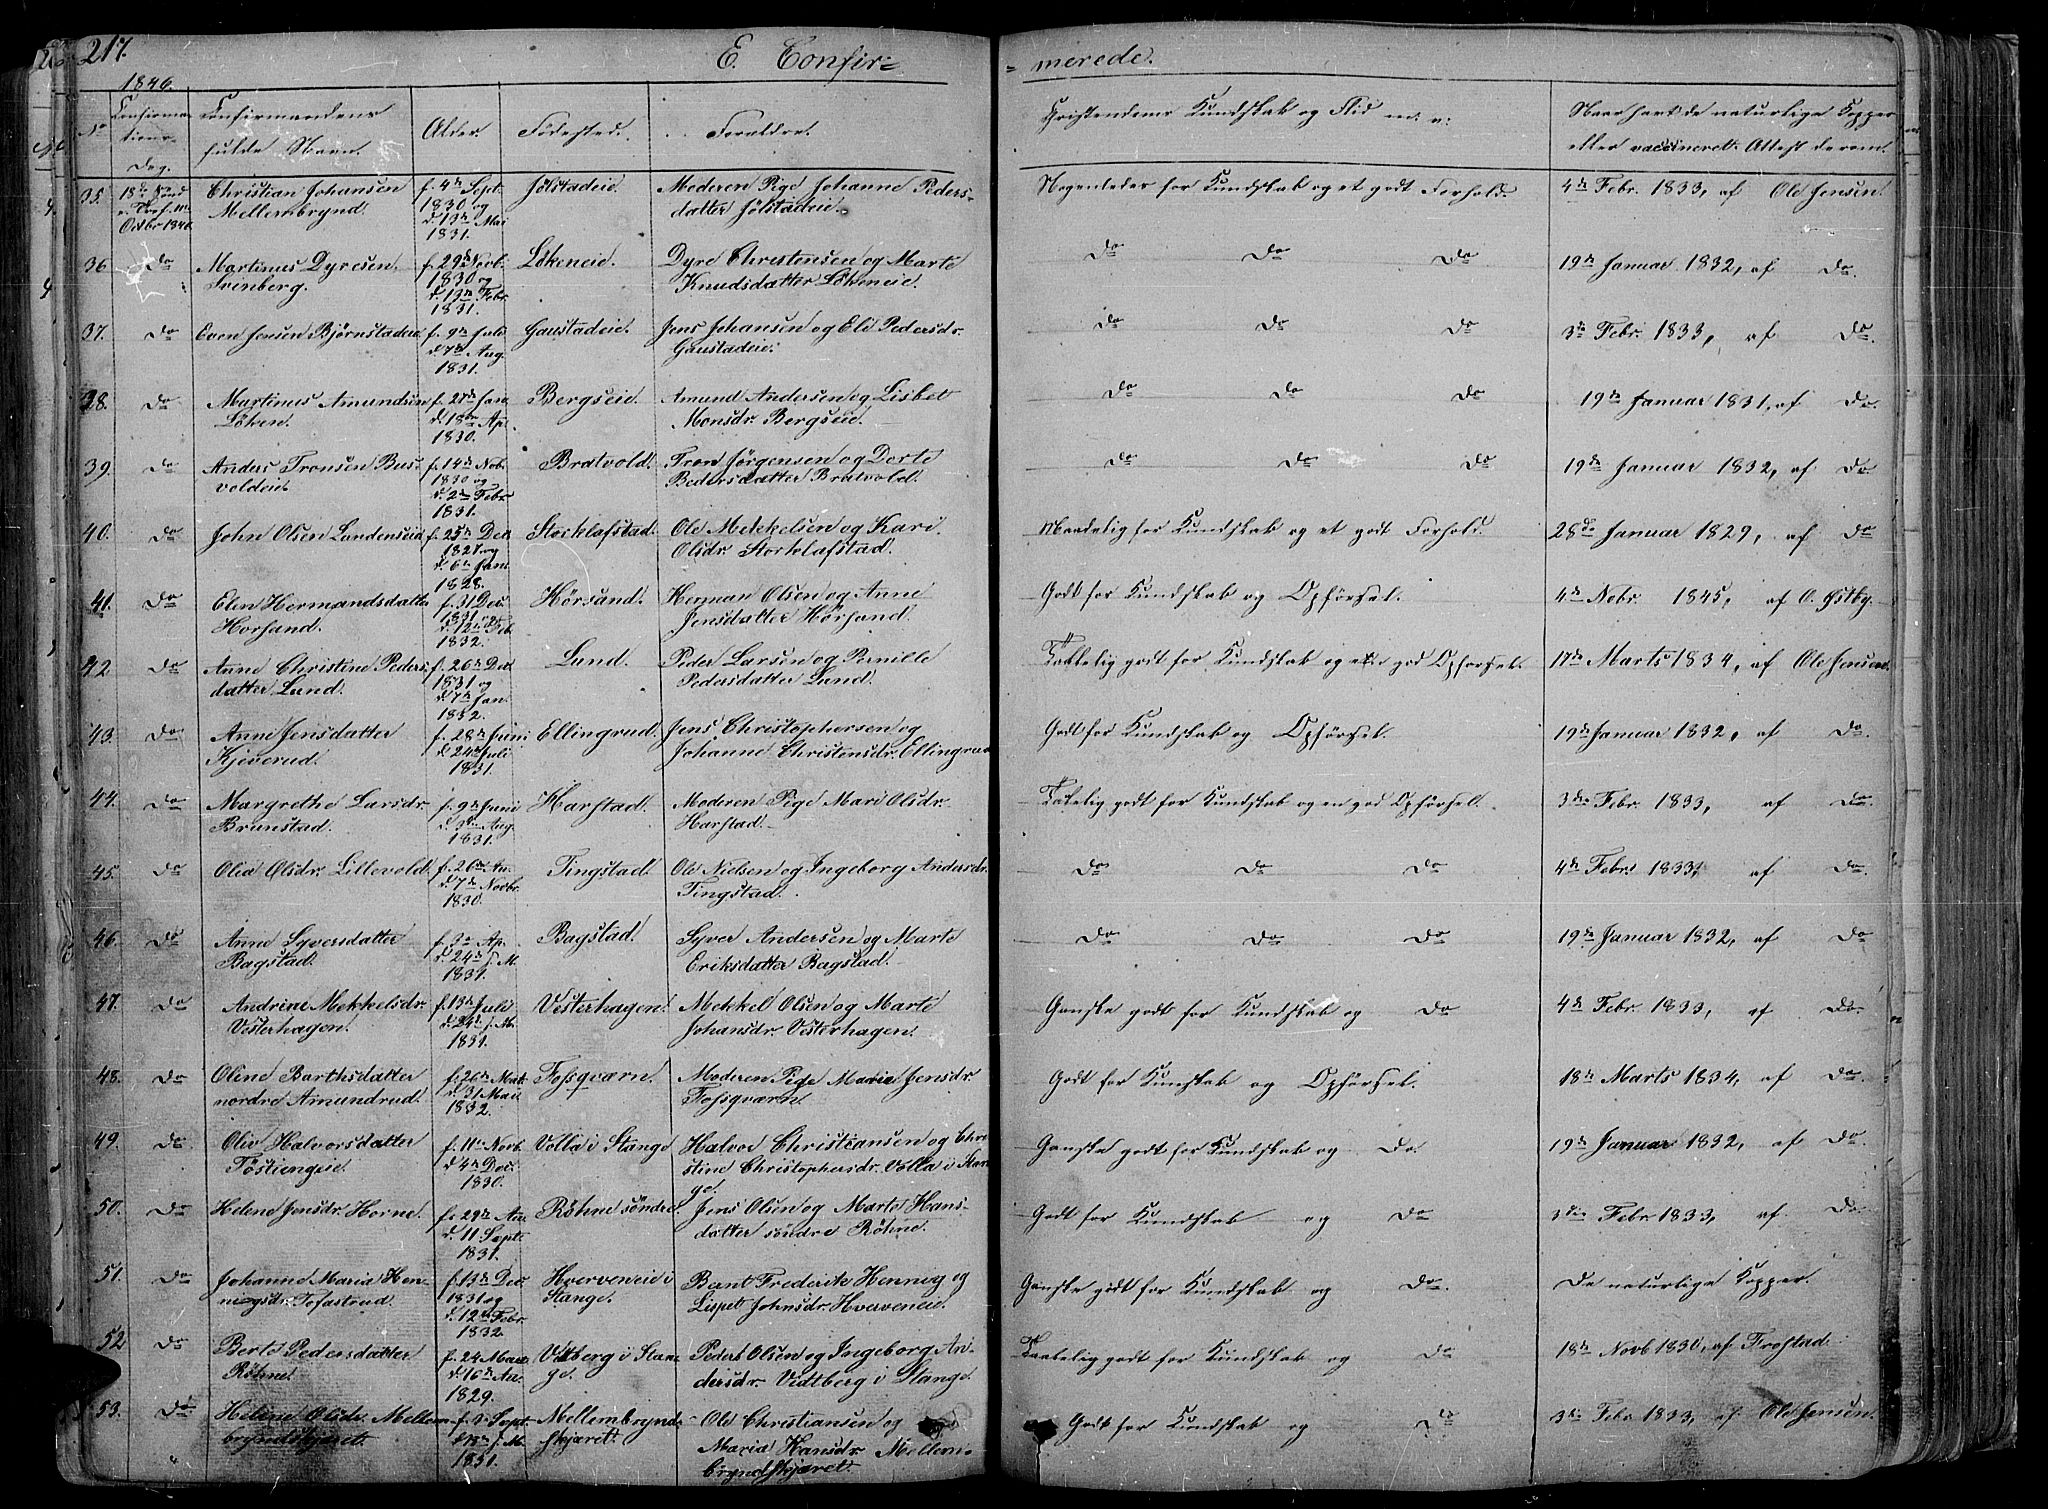 217.
E. Confir=
= merede.
1846.
No
Confirma-
tions-
Dag.
Confirmandens
fulde Navn.
Alder.
Fødested.
Foreldre.
Christendoms Kundskab og Flid m. v:
Naar havt de naturlige Kopper
eller vaccineret. Attest derom.
35. 18de S. ... Octbr 1846. Christian Johansen Mellembrynd. f. 4de Sept. 1830 og d. 13de Mai 1831. Jölstadeie. Moderen Pige Johanne Pedersdatter Jölstadeie. Nogenledes for Kundskab og et godt Forhold. 4de Febr. 1833, af Ole Jensen.
36 Do Martinus Dyresen Svenberg. f. 29de Novb. 1830 og d. 13de Febr. 1831. Lökeneie. Dyre Christensen og Marte Knudsdatter Lökeneie. Do Do Do 19de Januar 1832, af Do.
37. Do Even Jensen Bjørnstadeie f. 9de Juli d. 7de Aug. 1831. Gaustadeie. Jens Johansen og Eli Pedersdr. Gaustadeie. Do Do Do 3de Febr. 1833, af Do.
38. Do Martinus Amundsen Löken. f. 27de Jan. d. 18de Ap. 1830. Bergseie. Amund Andersen og Lisbet Monsdr. Bergseie. Do Do Do 19de Januar 1831, af Do.
39. Do Anders Tronsen Busvoldeie. f. 14de Nob. 1830 og d. 2de Febr. 1831. Bratvold. Tron Jörgensen og Dorte Pedersdatter Bratvold. Do Do Do 19de Januar 1832, af Do
40. Do John Olsen Landenseie f. 25de Dec. 1827 og d. 6te Jani 1828. Storklafstad. Ole Mekkelsen og Kari Olsdr. Storklafstad. Maadelig for Kundskab og et godt Forhold. 28de Januar 1829, af Do
41. Do Elen Hermandsdatter Horsand. f. 31 Dec. 1831 og d. 12te Feb. 1832. Hörsand. Herman Olsen og Anne Jensdatter Hörsand. Godt for Kundskab og Opførsel. 4de Nobr. 1845, af O. Østby.
42. Do Anne Christine Pedersdatter Lund. f. 26de Dec. 1831 og d. 7de Jan. 1832. Lund. Peder Larsen og Pernille Pedersdatter Lund. Taalelig godt for Kundskab og en god Opførsel. 17de Marts 1834, af Ole Jensen.
43. Do Anne Jensdatter Kjeverud. f. 28de Juni d. 24de Juli 1831. Ellingrud. Jens Christophersen og Johanne Christensdr. Ellingrud Godt for Kundskab og Opførsel. 19de Januar 1832, af Do.
44. Do Margrethe Larsdr. Brunstad. f. 9de Juni d. 3die Aug. 1831. Harstad. Moderen Pige Mari Olsdr. Harstad. Taalelig godt for Kundskab og en god Opførsel. 3die Febr. 1833, af Do.
45. Do Olia Olsdr. Lillevold. f. 26de Au. d. 7de Novbr. 1830. Tingstad. Ole Nielsen og Ingeborg Andersdr. Tingstad. Do Do Do 4de Febr. 1833, af Do.
46. Do Anne Syversdatter Bagstad. f. 3de Ap. d. 24de s. M. 1831. Bagstad. Syver Andersen og Marte Eriksdatter Bagstad. Do Do Do 19de Januar 1832, af Do
47. Do Andrine Mekkelsdr. Vesterhagen. f. 13de Juli d. 24de s. M. 1831. Vesterhagen. Mekkel Olsen og Marte Johansdr. Vesterhagen. Ganske godt for Kundskab og Do 4de Febr. 1833, af Do.
48. Do Oline Barthsdatter nordre Amundrud. f. 26de Mar. d. 31 Mai 1832. Fossqværn. Moderen Pige Maria Jensdr. Fossqværn. Godt for Kundskab og Opførsel. 18de Marts 1834, af Do.
49. Do Olia Halvorsdatter Töstiengeie. f. 11te Novb. d. 4de Dec. 1830. Volla i Stange Halvor Christiansen og Christine Christophersdr. Volla i Stange. Ganske godt for Kundskab og Do. 19de Januar 1832, af Do.
50. Do Helene Jensdr. Horne. f. 29de Au. d. 11 Sept. 1831. Röhne söndre. Jens Olsen og Marte Hansdatter söndre Röhne. Godt for Kundskab og Do 3die Febr. 1833, af Do.
51. Do Johanne Maria Henningsdr. Tofastrud. f. 13de Dec. 1831 og d. 12te Febr. 1832. Hverveneie i Stange. Bernt Frederik Hennig og Lispet Johnsdr. Hverveneie. Ganske godt for Kundskab og Do. De naturlige Kopper.
52. Do Berte Pedersdatter Röhne. f. 24 Marts d. 16de Au. 1829. Vidtberg i Stange. Peder Olsen og Ingeborg Andersdr. Vidtberg i Stange. Taalelig godt for Kundskab og Do 18de Novb 1830, af Frostad.
53. Do Helene Olsdr. Mellembryndskjæret. f. 3 Sept. d. 18de s. M. 1831. Mellembryndskjæret. Ole Christiansen og Maria Hansdr. Mellembryndskjæret. Godt for Kundskab og Do 3die Febr. 1833, af Ole Jensen.